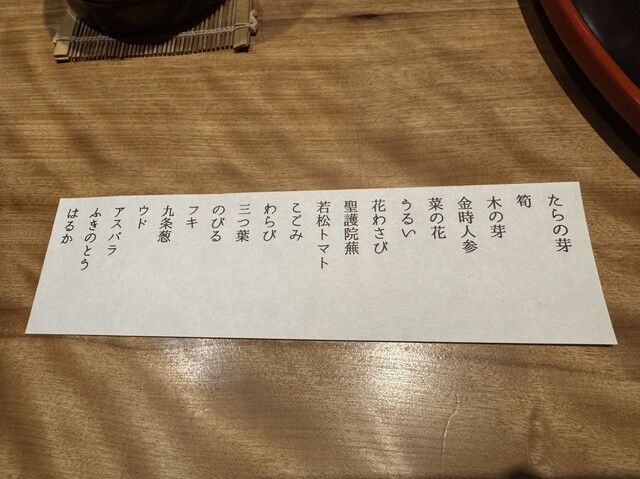 たらの芽
筍
木の芽
金時人参
菜の花
うるい
花わさび
聖護院蕪
若松トマト
こごみ
わらび
三つ葉
のびる
フキ
九条葱
ウド
アスパラ
ふきのとう
はるか